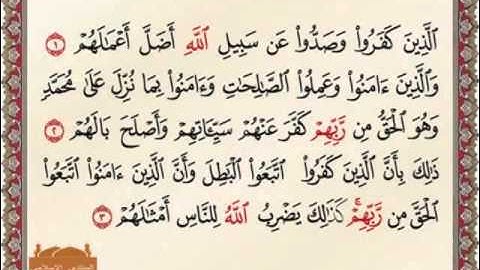 الَّذِينَ كَفَرُوا۟ وَصَدُّوا۟ عَن سَبِيلِ اللَّهِ أَضَلَّ أَعْمَٰلَهُمْ ١
وَالَّذِينَ ءَامَنُوا۟ وَعَمِلُوا۟ الصَّٰلِحَٰتِ وَءَامَنُوا۟ بِمَا نُزِّلَ عَلَىٰ مُحَمَّدٍ
وَهُوَ الْحَقُّ مِن رَّبِّهِمْ كَفَّرَ عَنْهُمْ سَيِّـَٔاتِهِمْ وَأَصْلَحَ بَالَهُمْ ٢
ذَٰلِكَ بِأَنَّ الَّذِينَ كَفَرُوا۟ اتَّبَعُوا۟ الْبَٰطِلَ وَأَنَّ الَّذِينَ ءَامَنُوا۟ اتَّبَعُوا۟
الْحَقَّ مِن رَّبِّهِمْ ۚ كَذَٰلِكَ يَضْرِبُ اللَّهُ لِلنَّاسِ أَمْثَٰلَهُمْ ٣